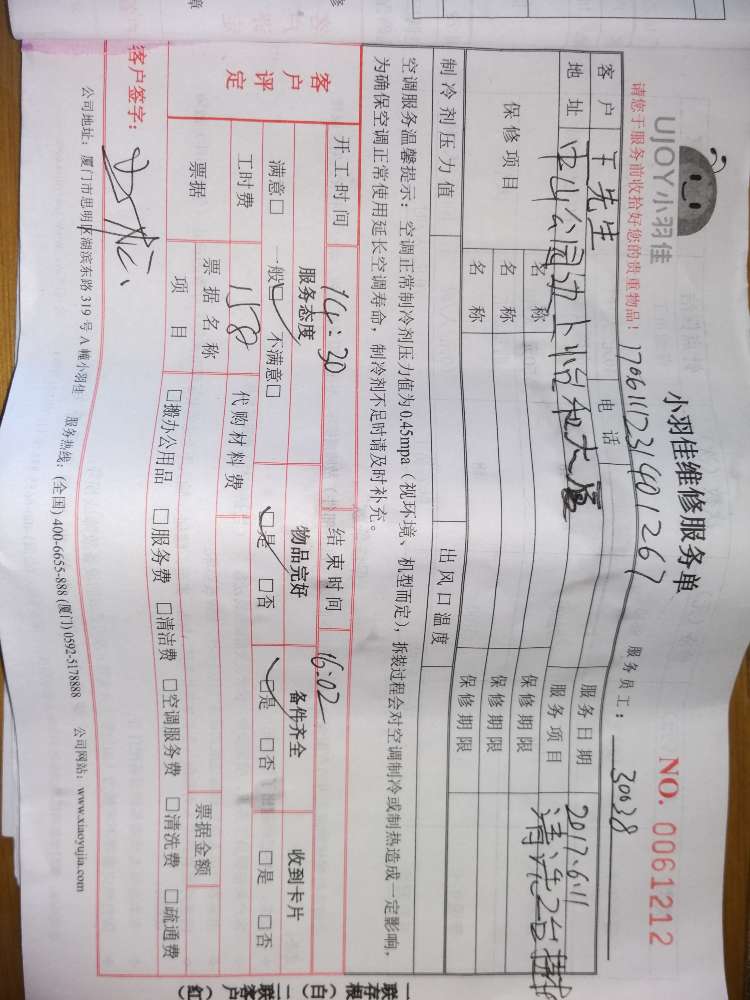 UJOY小羽佳
小羽佳维修服务单
NO. 0061212
请您于服务前收拾好您的贵重物品!
170611231401267
服务员工: 30038
客户 先生 电话 服务日期 2017.6.11
地址 中山公园边上 大厦 服务项目 清洗2台
保修项目 名称 保修期限
名称 保修期限
名称 保修期限
制冷剂压力值 出风口温度
空调服务温馨提示: 空调正常制冷剂压力值为0.45mpa(视环境、机型而定), 拆装过程会对空调制冷或制热造成一定影响,
为确保空调正常使用延长空调寿命, 制冷剂不足时请及时补充。
开工时间 14:30 结束时间 16:02
客户评定
服务态度 物品完好 备件齐全 收到卡片
满意□ 一般□ 不满意□ □是 □否 □是 □否 □是 □否
工时费 158 代购材料费
票据 票据名称 票据金额
项目 □搬办公用品 □服务费 □清洁费 □空调服务费 □清洗费 □疏通费
客户签字:
公司地址: 厦门市思明区湖滨东路319号A幢小羽佳 服务热线: (全国) 400-6655-888 (厦门) 0592-5178888 公司网站: www.xiaoyujia.com
一联存根(白)
二联客户(红)